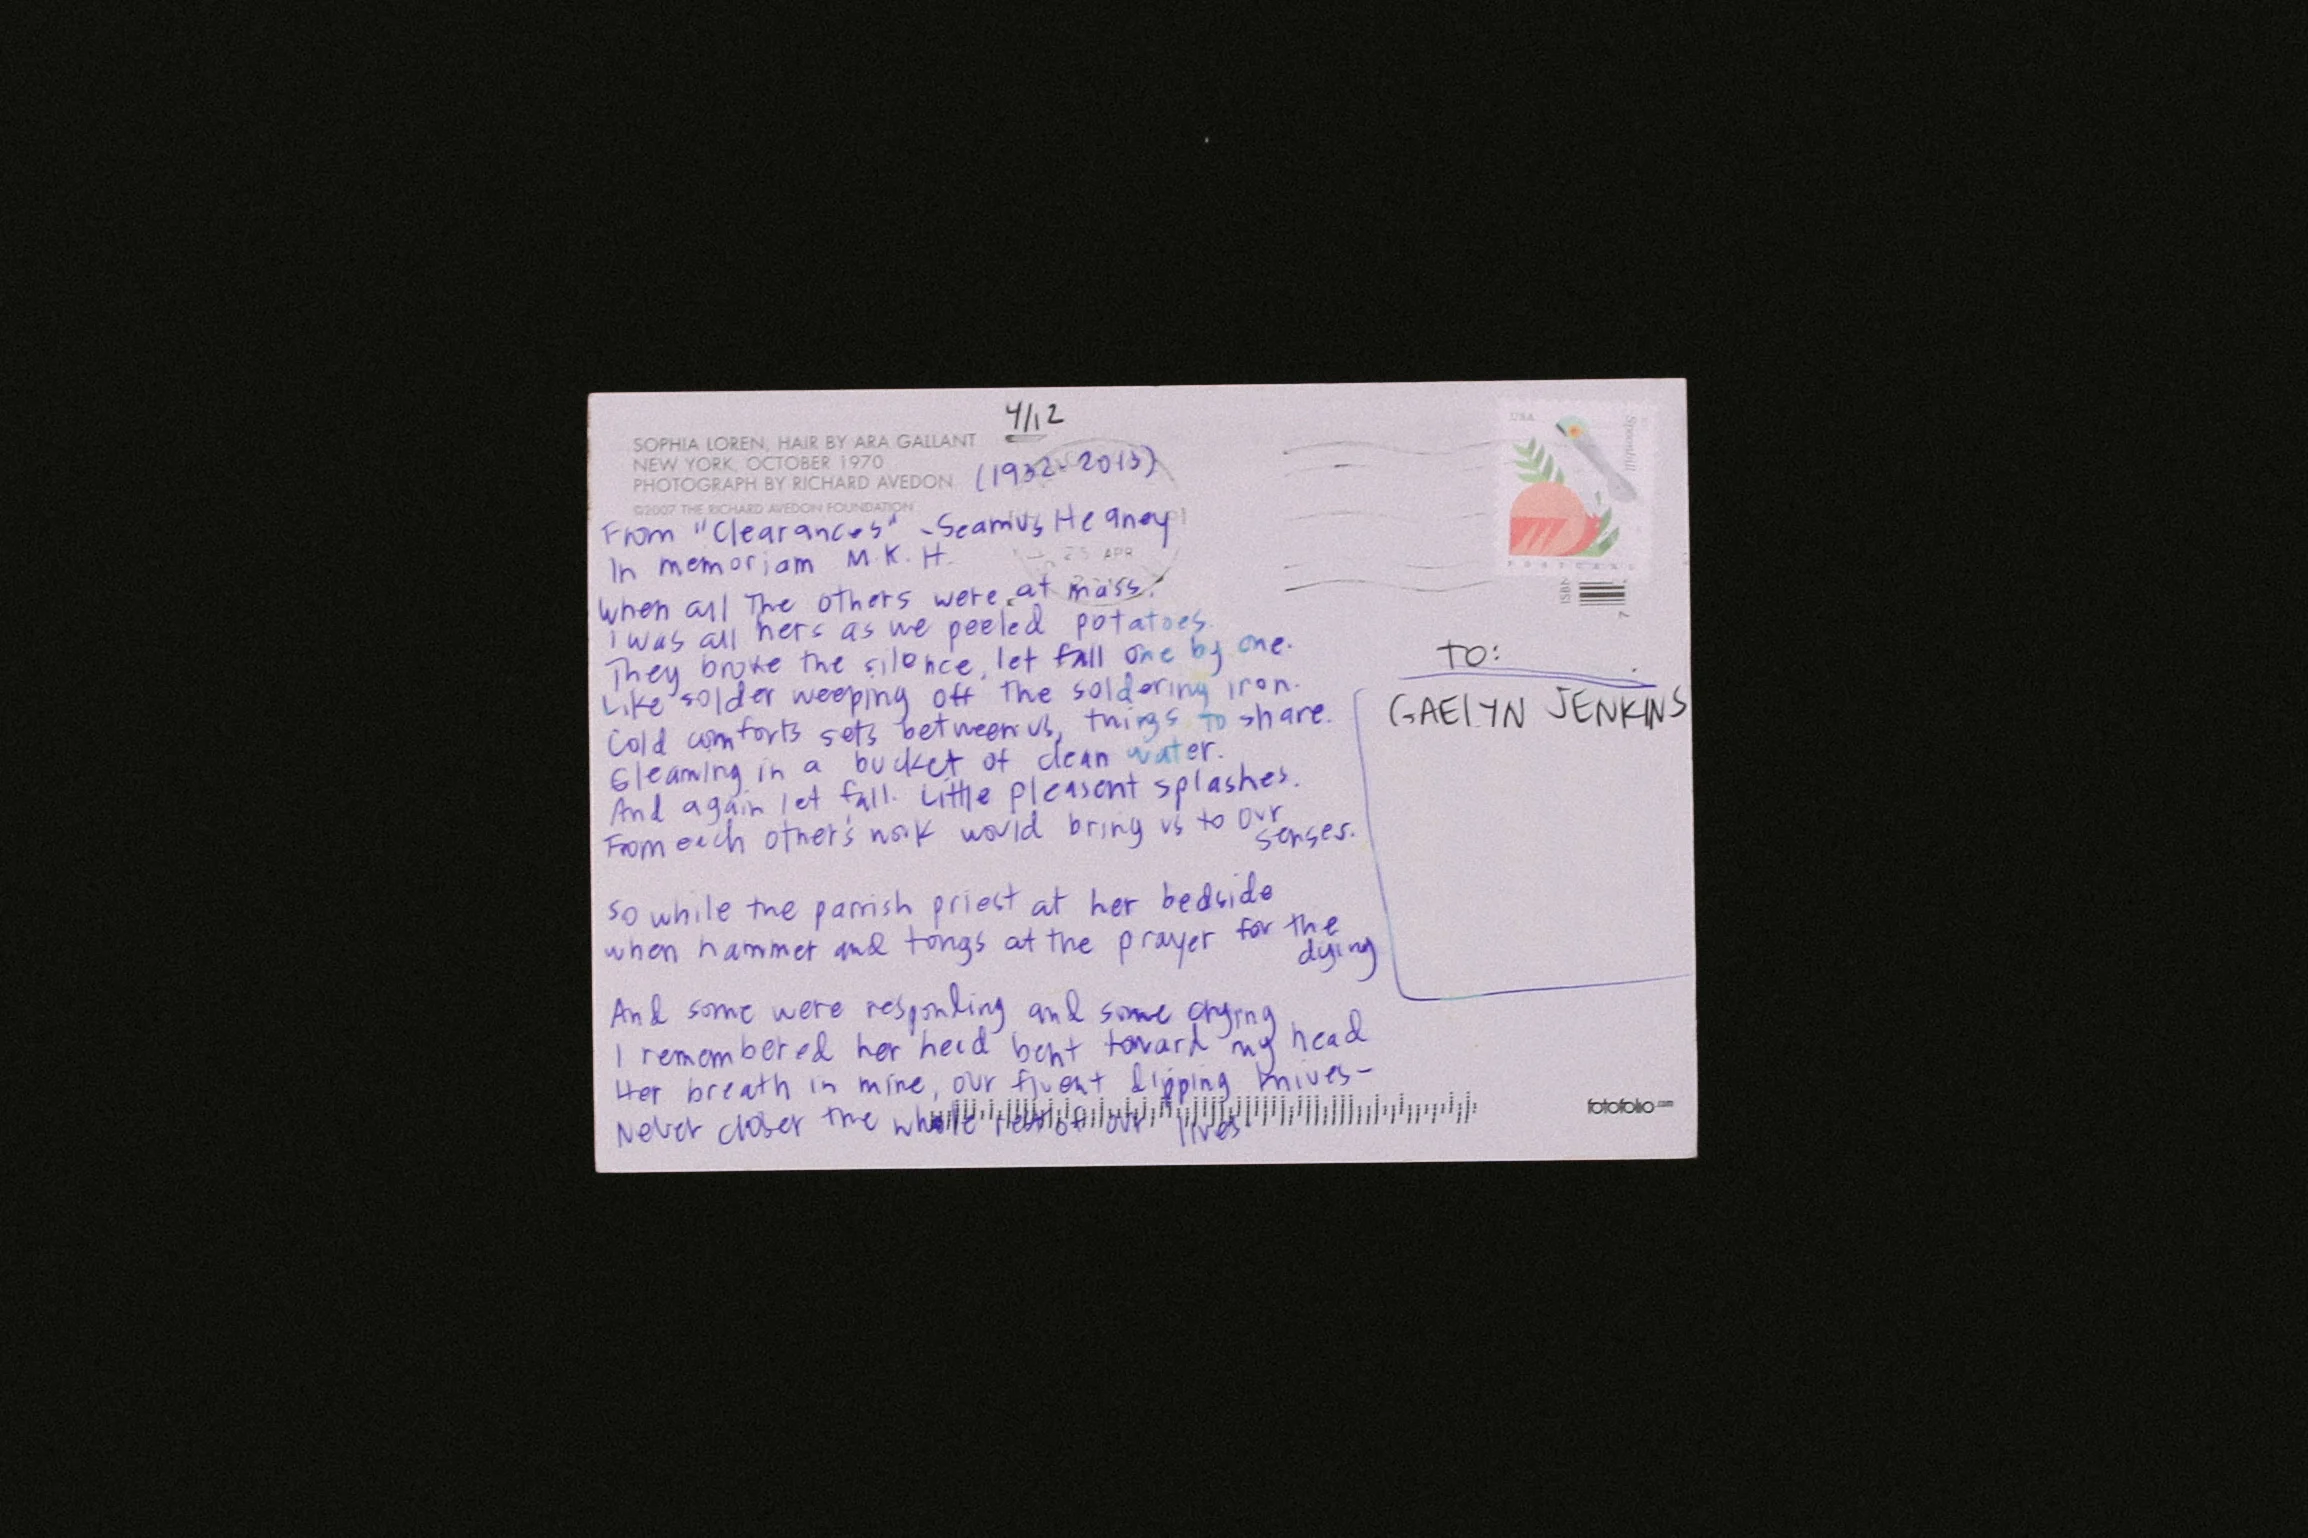 4/12
SOPHIA LOREN, HAIR BY ARA GALLANT
NEW YORK, OCTOBER 1970
PHOTOGRAPH BY RICHARD AVEDON
(1932-2013)
©2007 THE RICHARD AVEDON FOUNDATION
From "Clearances" - Seamus Heaney
In memoriam M.K.H.
25 APR
When all the others were at mass.
I was all hers as we peeled potatoes.
They broke the silence, let fall one by one.
Like solder weeping off the soldering iron.
Cold comforts sets between us, things to share.
Gleaming in a bucket of clean water.
And again let fall. Little pleasent splashes.
From each other's work would bring us to our
senses.
So while the parrish priest at her bedside
when hammer and tongs at the prayer for the
dying
And some were responding and some crying
I remembered her head bent toward my head
Her breath in mine, our fluent dipping knives-
Never closer the whole rest of our lives.
USA
Spoonbill
POSTCARD
ISBN
7
TO:
GAELYN JENKINS
fotofolio.com